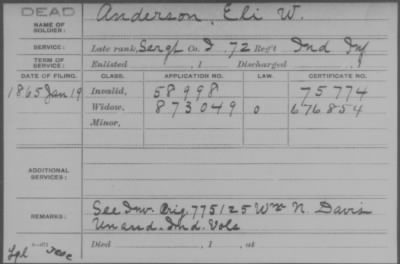 DEAD
NAME OF SOLDIER: Anderson, Eli W.
SERVICE: Late rank, Sergt Co. I, 72 Reg't Ind Inf
TERM OF SERVICE: Enlisted , 1 Discharged , 1
DATE OF FILING. CLASS. APPLICATION NO. LAW. CERTIFICATE NO.
1865 Jan 19 Invalid, 58998 75774
Widow, 873049 0 676854
Minor,
ADDITIONAL SERVICES:
REMARKS: See Inv. Orig. 775125 Wm N. Davis
Unasd. Ind. Vols
Died , 1 , at